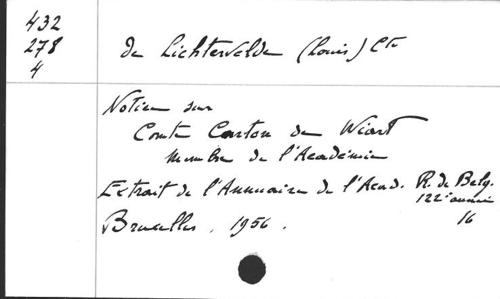 432
278
4
de Lichtervelde (Louis) Cte
Notice sur
Comte Carton de Wiart
Membre de l'Académie
Extrait de l'Annuaire de l'Acad. R. de Belg.
122e année
Bruxelles, 1956.
16